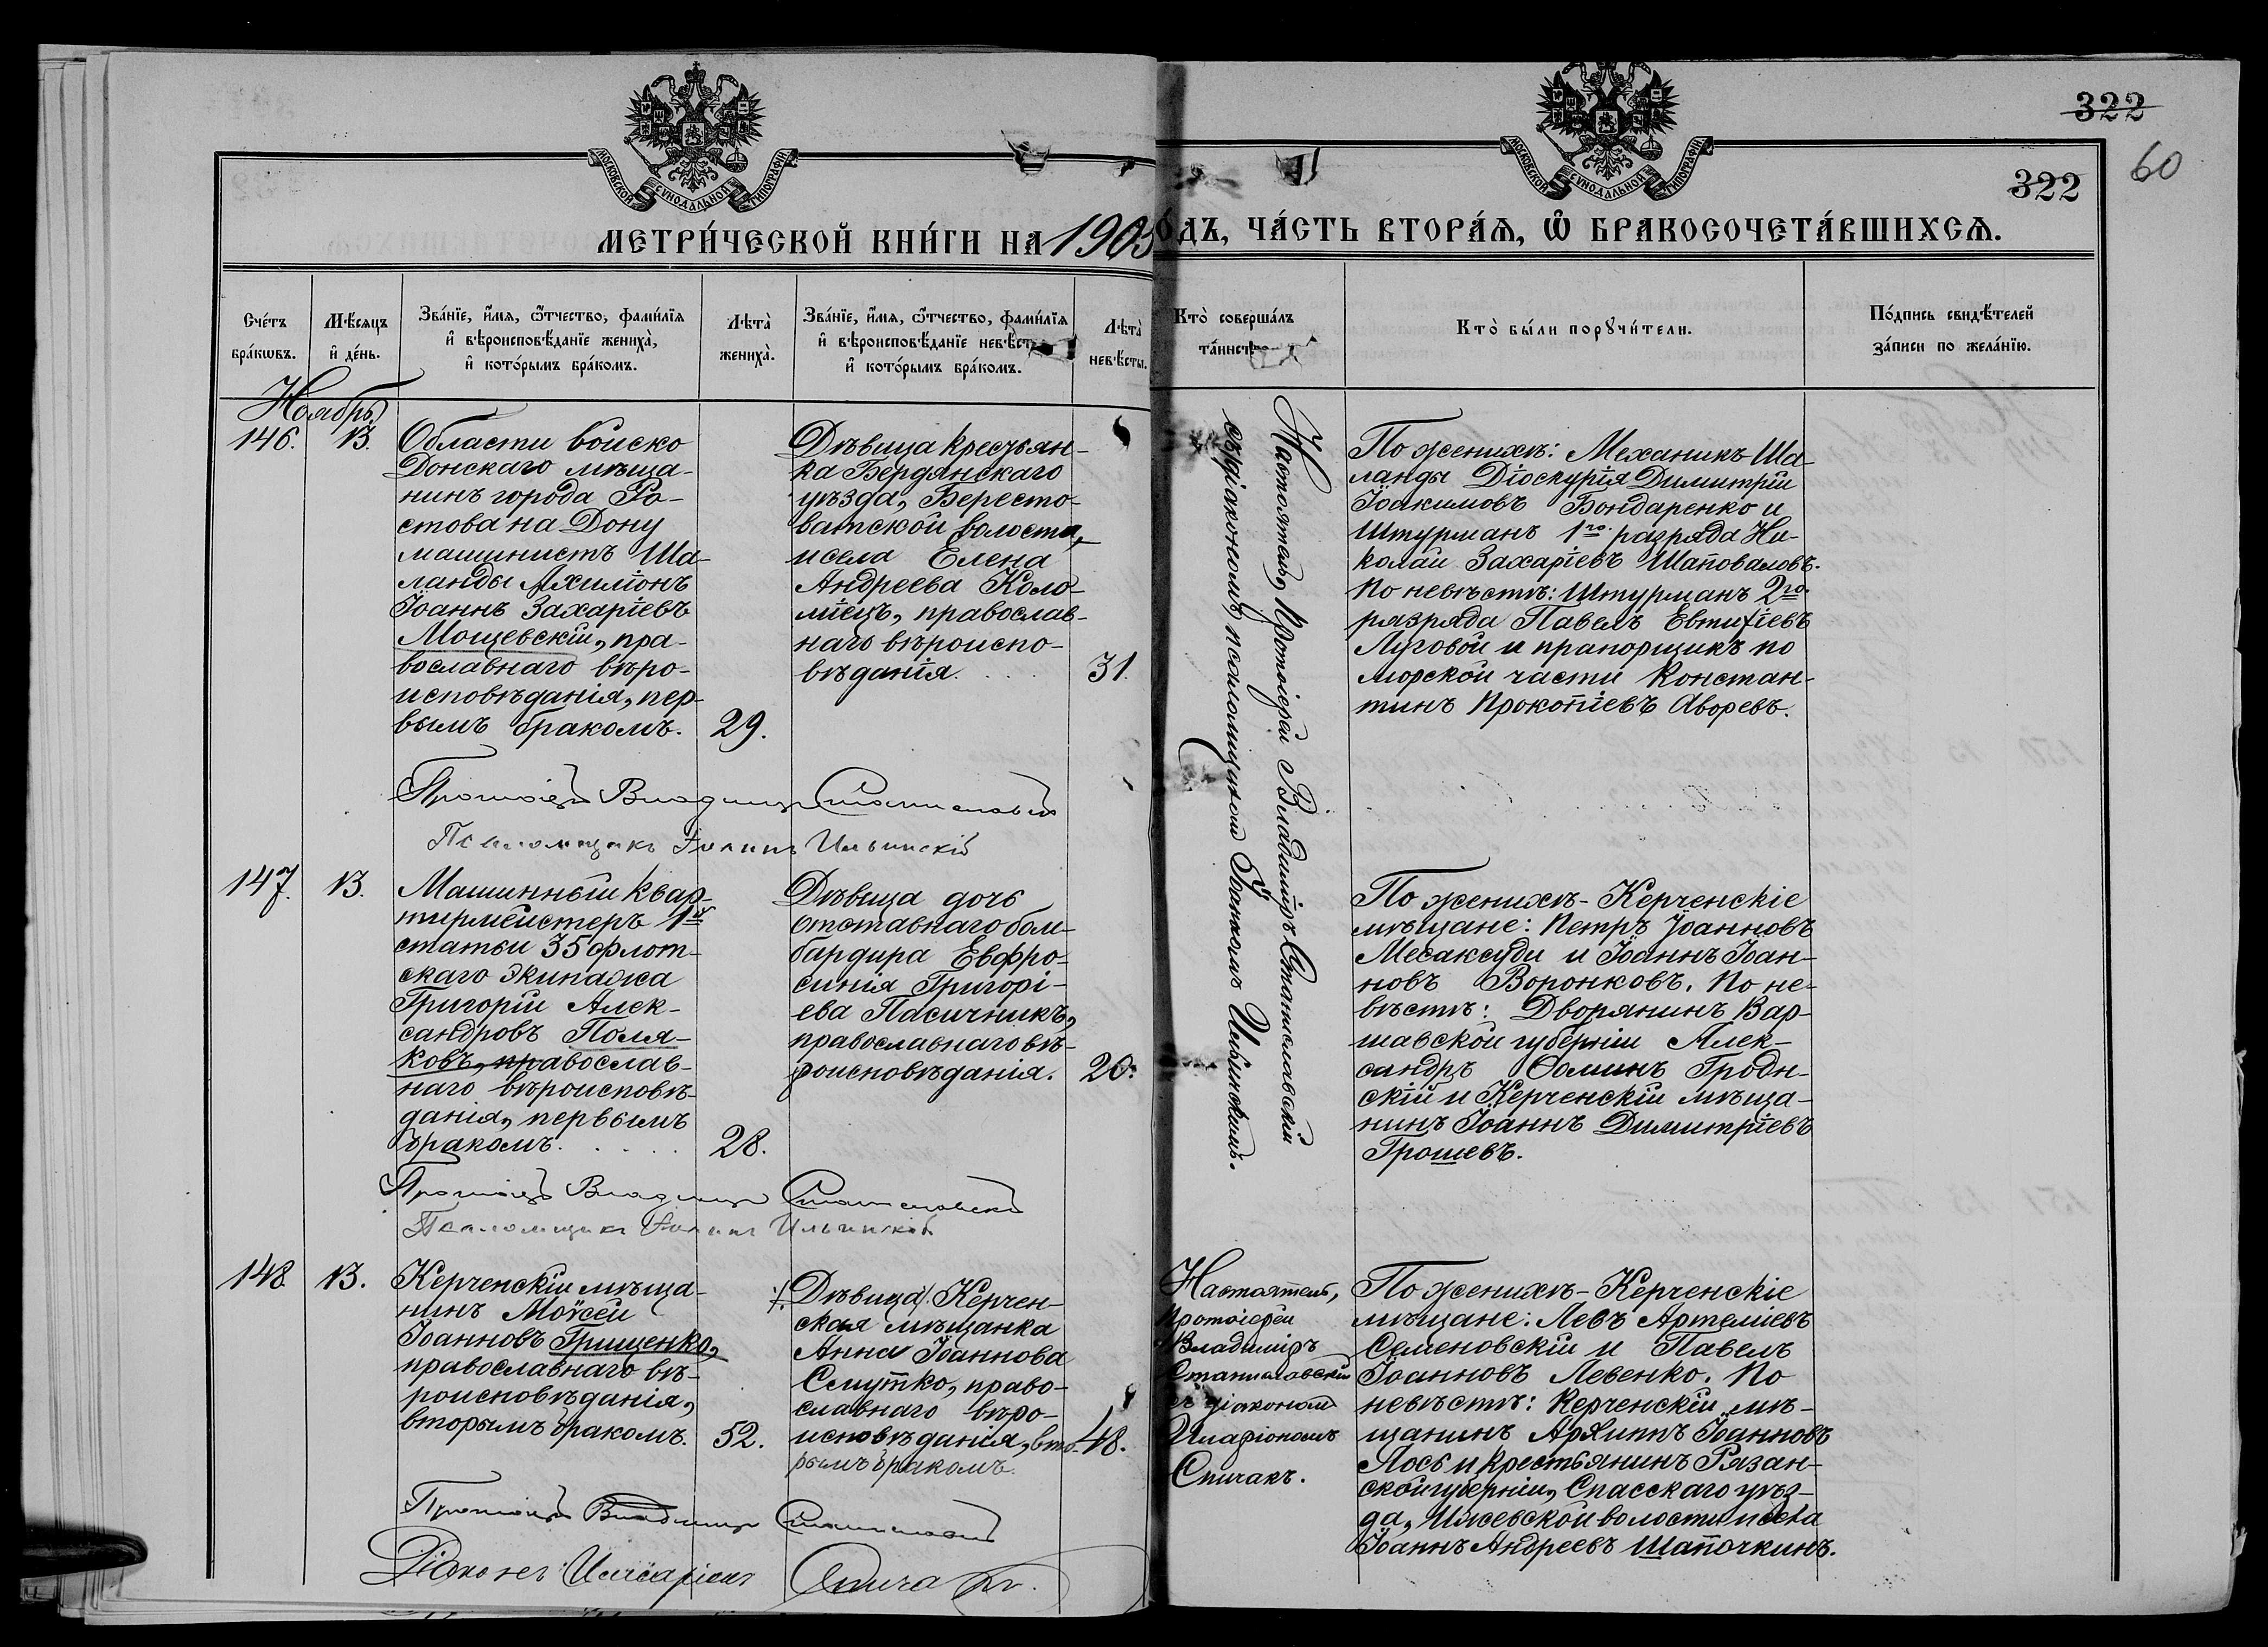 МОСКОВСКОЙ СѴНОДАЛЬНОЙ ТИПОГРАФІИ.
МОСКОВСКОЙ СѴНОДАЛЬНОЙ ТИПОГРАФІИ.
322
322
60
МЕТРИ́ЧЕСКОЙ КНИ́ГИ НА 1905
ОДЪ, ЧА́СТЬ ВТОРА́Ѧ, Ѽ БРАКОСОЧЕТА́ВШИХСѦ.
Сче́тъ
бра́кѡвъ.
Мѣ́сяцъ
и҆ де́нь.
Зва́нїе, и҆́мѧ, ѻ҆́тчество, фами́лїѧ
и҆ вѣроисповѣ́данїе жениха̀,
и҆ кото́рымъ бра́комъ.
Лѣта̀
жениха̀.
Зва́нїе, и҆́мѧ, ѻ҆́тчество, фами́лїѧ
и҆ вѣроисповѣ́данїе невѣст
и҆ кото́рымъ бра́комъ.
Лѣта̀
невѣ́сты.
Кто̀ соверша́лъ
та́инст
Кто̀ бы́ли порꙋчи́тели.
По́дпись свидѣ́телей
за́писи по жела́нїю.
Ноябрь
146.
13.
Области войско
Донскаго мѣща-
нинъ города Ро-
стова на Дону
машинистъ Ша-
ланды Ахиліонъ
Іоаннъ Захаріевъ
Мощевскій, пра-
вославнаго вѣро-
исповѣданія, пер-
вымъ бракомъ.
29.
Дѣвица крестьян-
ка Бердянскаго
уѣзда, Бересто-
ватской волости,
и села Елена
Андреева Коло-
мiецъ, православ-
наго вѣроиспо-
вѣданія. . . .
31.
Настоятель, Протоіерей Владиміръ Станиславскій
съ діакономъ псаломщикомъ Іоанномъ Ильинскимъ.
По женихѣ: Механикъ Ша-
ланды Діоскурія Димитрій
Іоакимовъ Бондаренко и
Штурманъ 1го разряда Ни-
колай Захаріевъ Шаповаловъ.
По невѣстѣ: Штурманъ 2го
разряда Павелъ Евтихіевъ
Луговой и прапорщикъ по
морской части Констан-
тинъ Прокопіевъ Аворевъ.
Протоіерей Владиміръ Станиславскій
Псаломщикъ Іоаннъ Ильинскій
147.
13.
Машинный квар-
тирмейстеръ 1й
статьи 35 флот-
скаго экипажа
Григорій Алек-
сандровъ Поля-
ковъ, православ-
наго вѣроисповѣ-
данія, первымъ
бракомъ. . . . .
28.
Дѣвица дочь
отставнаго бом-
бардира Евфро-
синія Григорі-
ева Пасичникъ,
православнаго вѣ-
роисповѣданія.
20.
По женихѣ - Керченскіе
мѣщане: Петръ Іоанновъ
Месаксуди и Іоаннъ Іоан-
новъ Воронковъ. По не-
вѣстѣ: Дворянинъ Вар-
шавской губерніи Алек-
сандръ Фоминъ Гродн-
скій и Керченскій мѣща-
нинъ Іоаннъ Димитріевъ
Грошевъ.
Протоіерей Владиміръ Станиславскій
Псаломщикъ Іоаннъ Ильинскій
148
13.
Керченскій мѣща-
нинъ Моисей
Іоанновъ Грищенко,
православнаго вѣ-
роисповѣданія,
вторымъ бракомъ.
52.
Дѣвица). Керчен-
ская мѣщанка
Анна Іоаннова
Смутко, право-
славнаго вѣро-
исповѣданія, вто-
рымъ бракомъ.
48.
Настоятель,
Протоіерей
Владиміръ
Станиславскій
съ діакономъ
Иларіономъ
Спичакъ.
По женихѣ - Керченскіе
мѣщане: Левъ Артеміевъ
Семеновскій и Павелъ
Іоанновъ Левенко. По
невѣстѣ: Керченскій мѣ-
щанинъ Архипъ Іоанновъ
Лось и крестьянинъ Рязан-
ской губерніи, Спасскаго уѣз-
да, Ижевской волости и села
Іоаннъ Андреевъ Шапочкинъ.
Протоіерей Владиміръ Станиславскій
Діаконъ Иларіонъ Спичакъ.